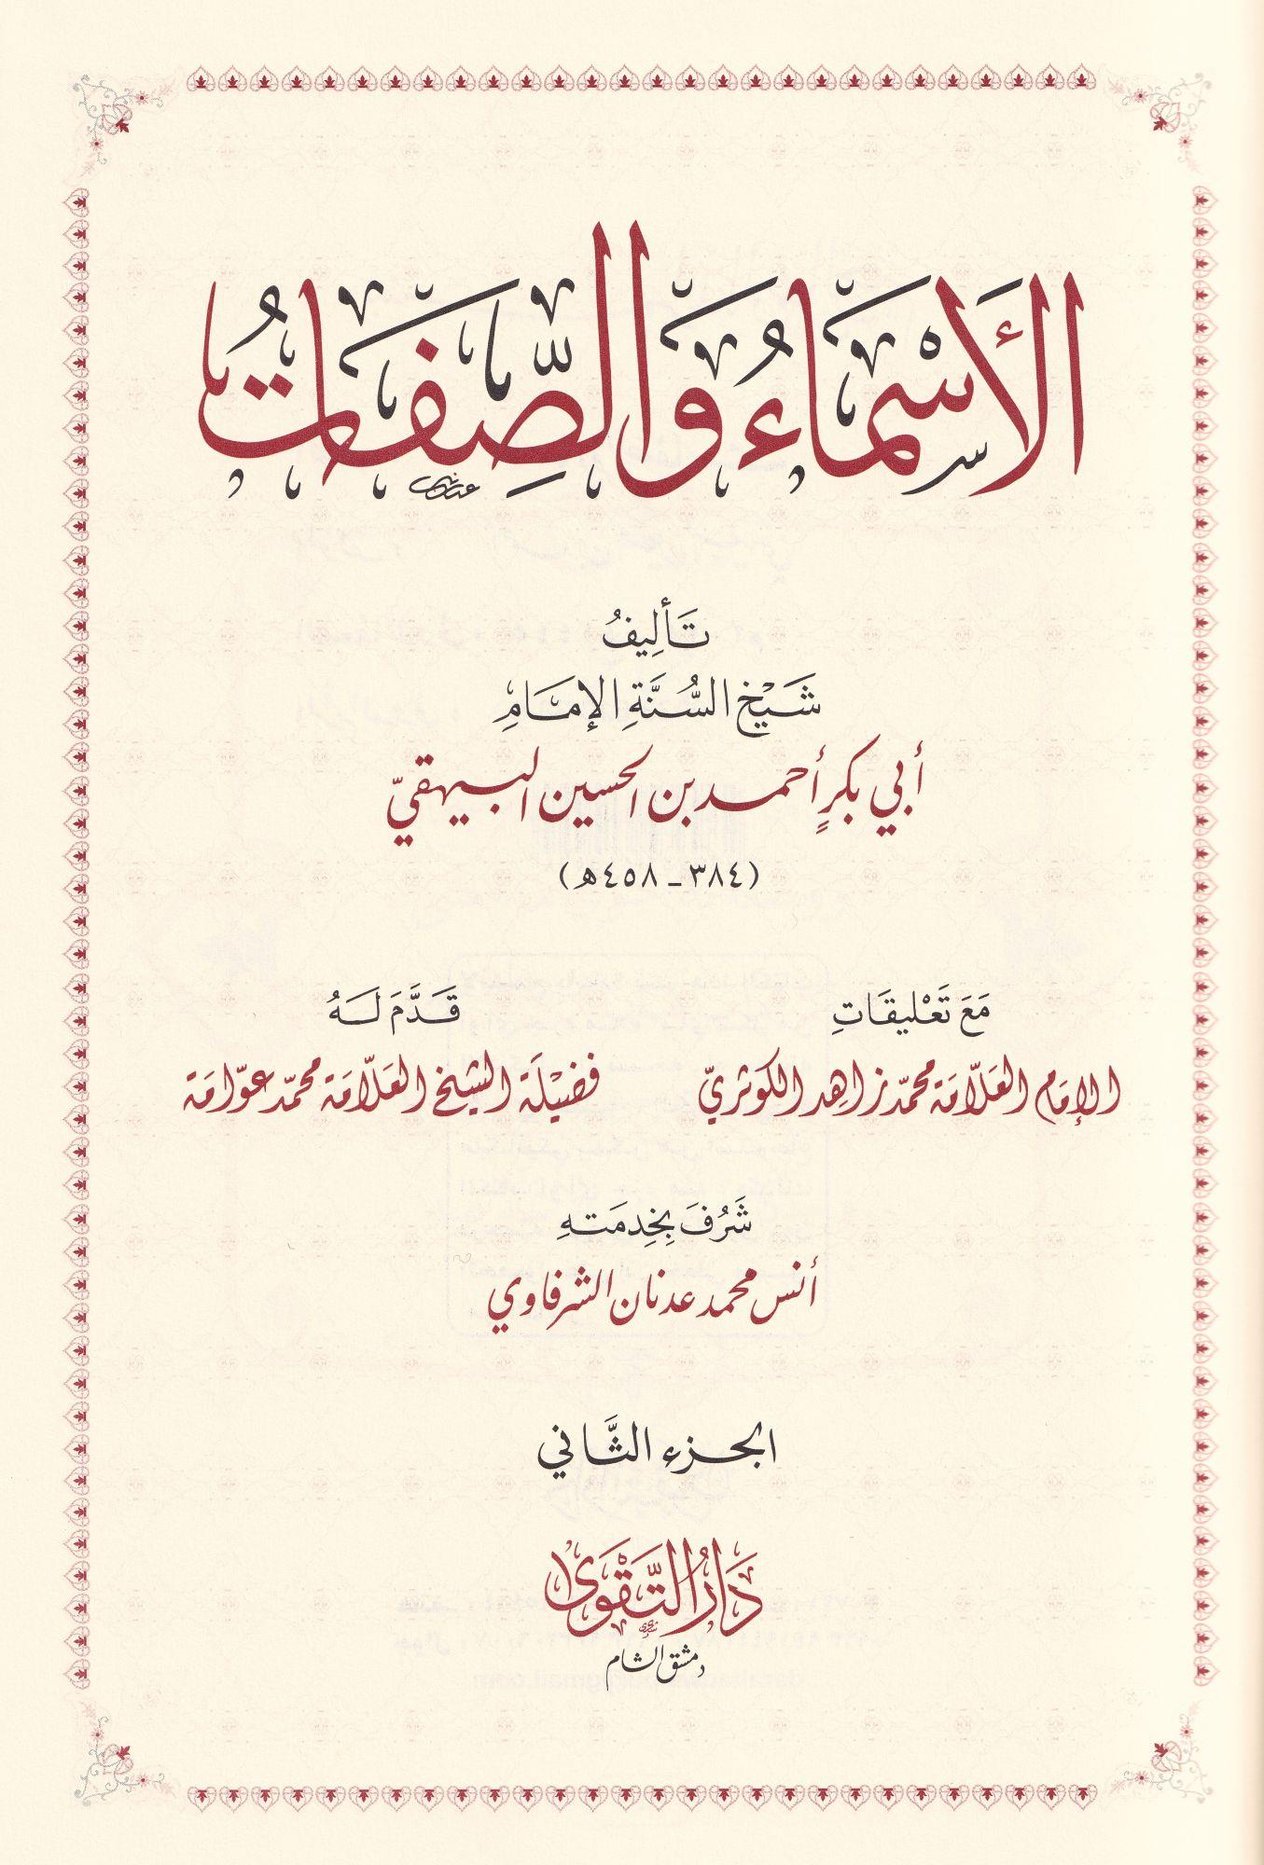 الأَسْمَاءُ وَالصِّفَاتُ
تَأليفُ
شَيْخِ السُّنَّةِ الإمَامِ
أبي بكرٍ أحمد بن الحسين البيهقيّ
(٣٨٤ - ٤٥٨ هـ)
مَعَ تَعْليقَاتِ
الإمَام العَلّامَة محمّد زاهِد الكوثريّ
قَدَّمَ لَهُ
فضيْلَة الشيخ العَلّامَة محمّد عوّامَة
شَرُفَ بِخِدمَتهِ
أنس محمد عدنان الشرفاوي
الجزء الثَّاني
دَارُ التَّقْوَى
دمشق الشام